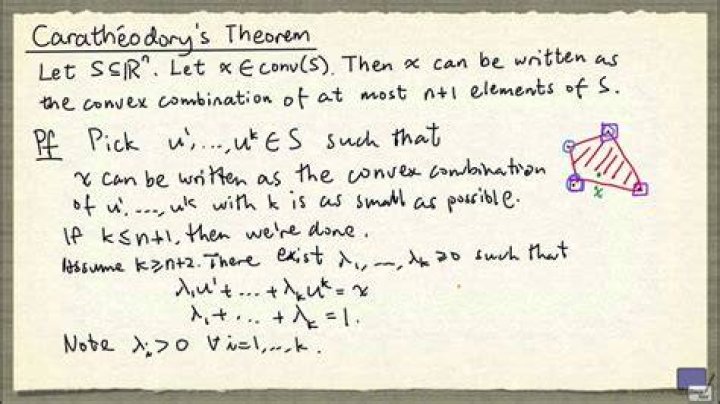 Carathéodory's Theorem
Let S⊆ℝⁿ. Let x∈conv(S). Then x can be written as
the convex combination of at most n+1 elements of S.
Pf Pick u¹,...,uᵏ∈S such that
x can be written as the convex combination
of u¹,...,uᵏ with k is as small as possible.
If k≤n+1, then we're done.
Assume k≥n+2. There exist λ₁,...,λₖ≥0 such that
λ₁u¹+...+λₖuᵏ=x
λ₁+...+λₖ=1.
Note λᵢ>0 ∀i=1,...,k.
x